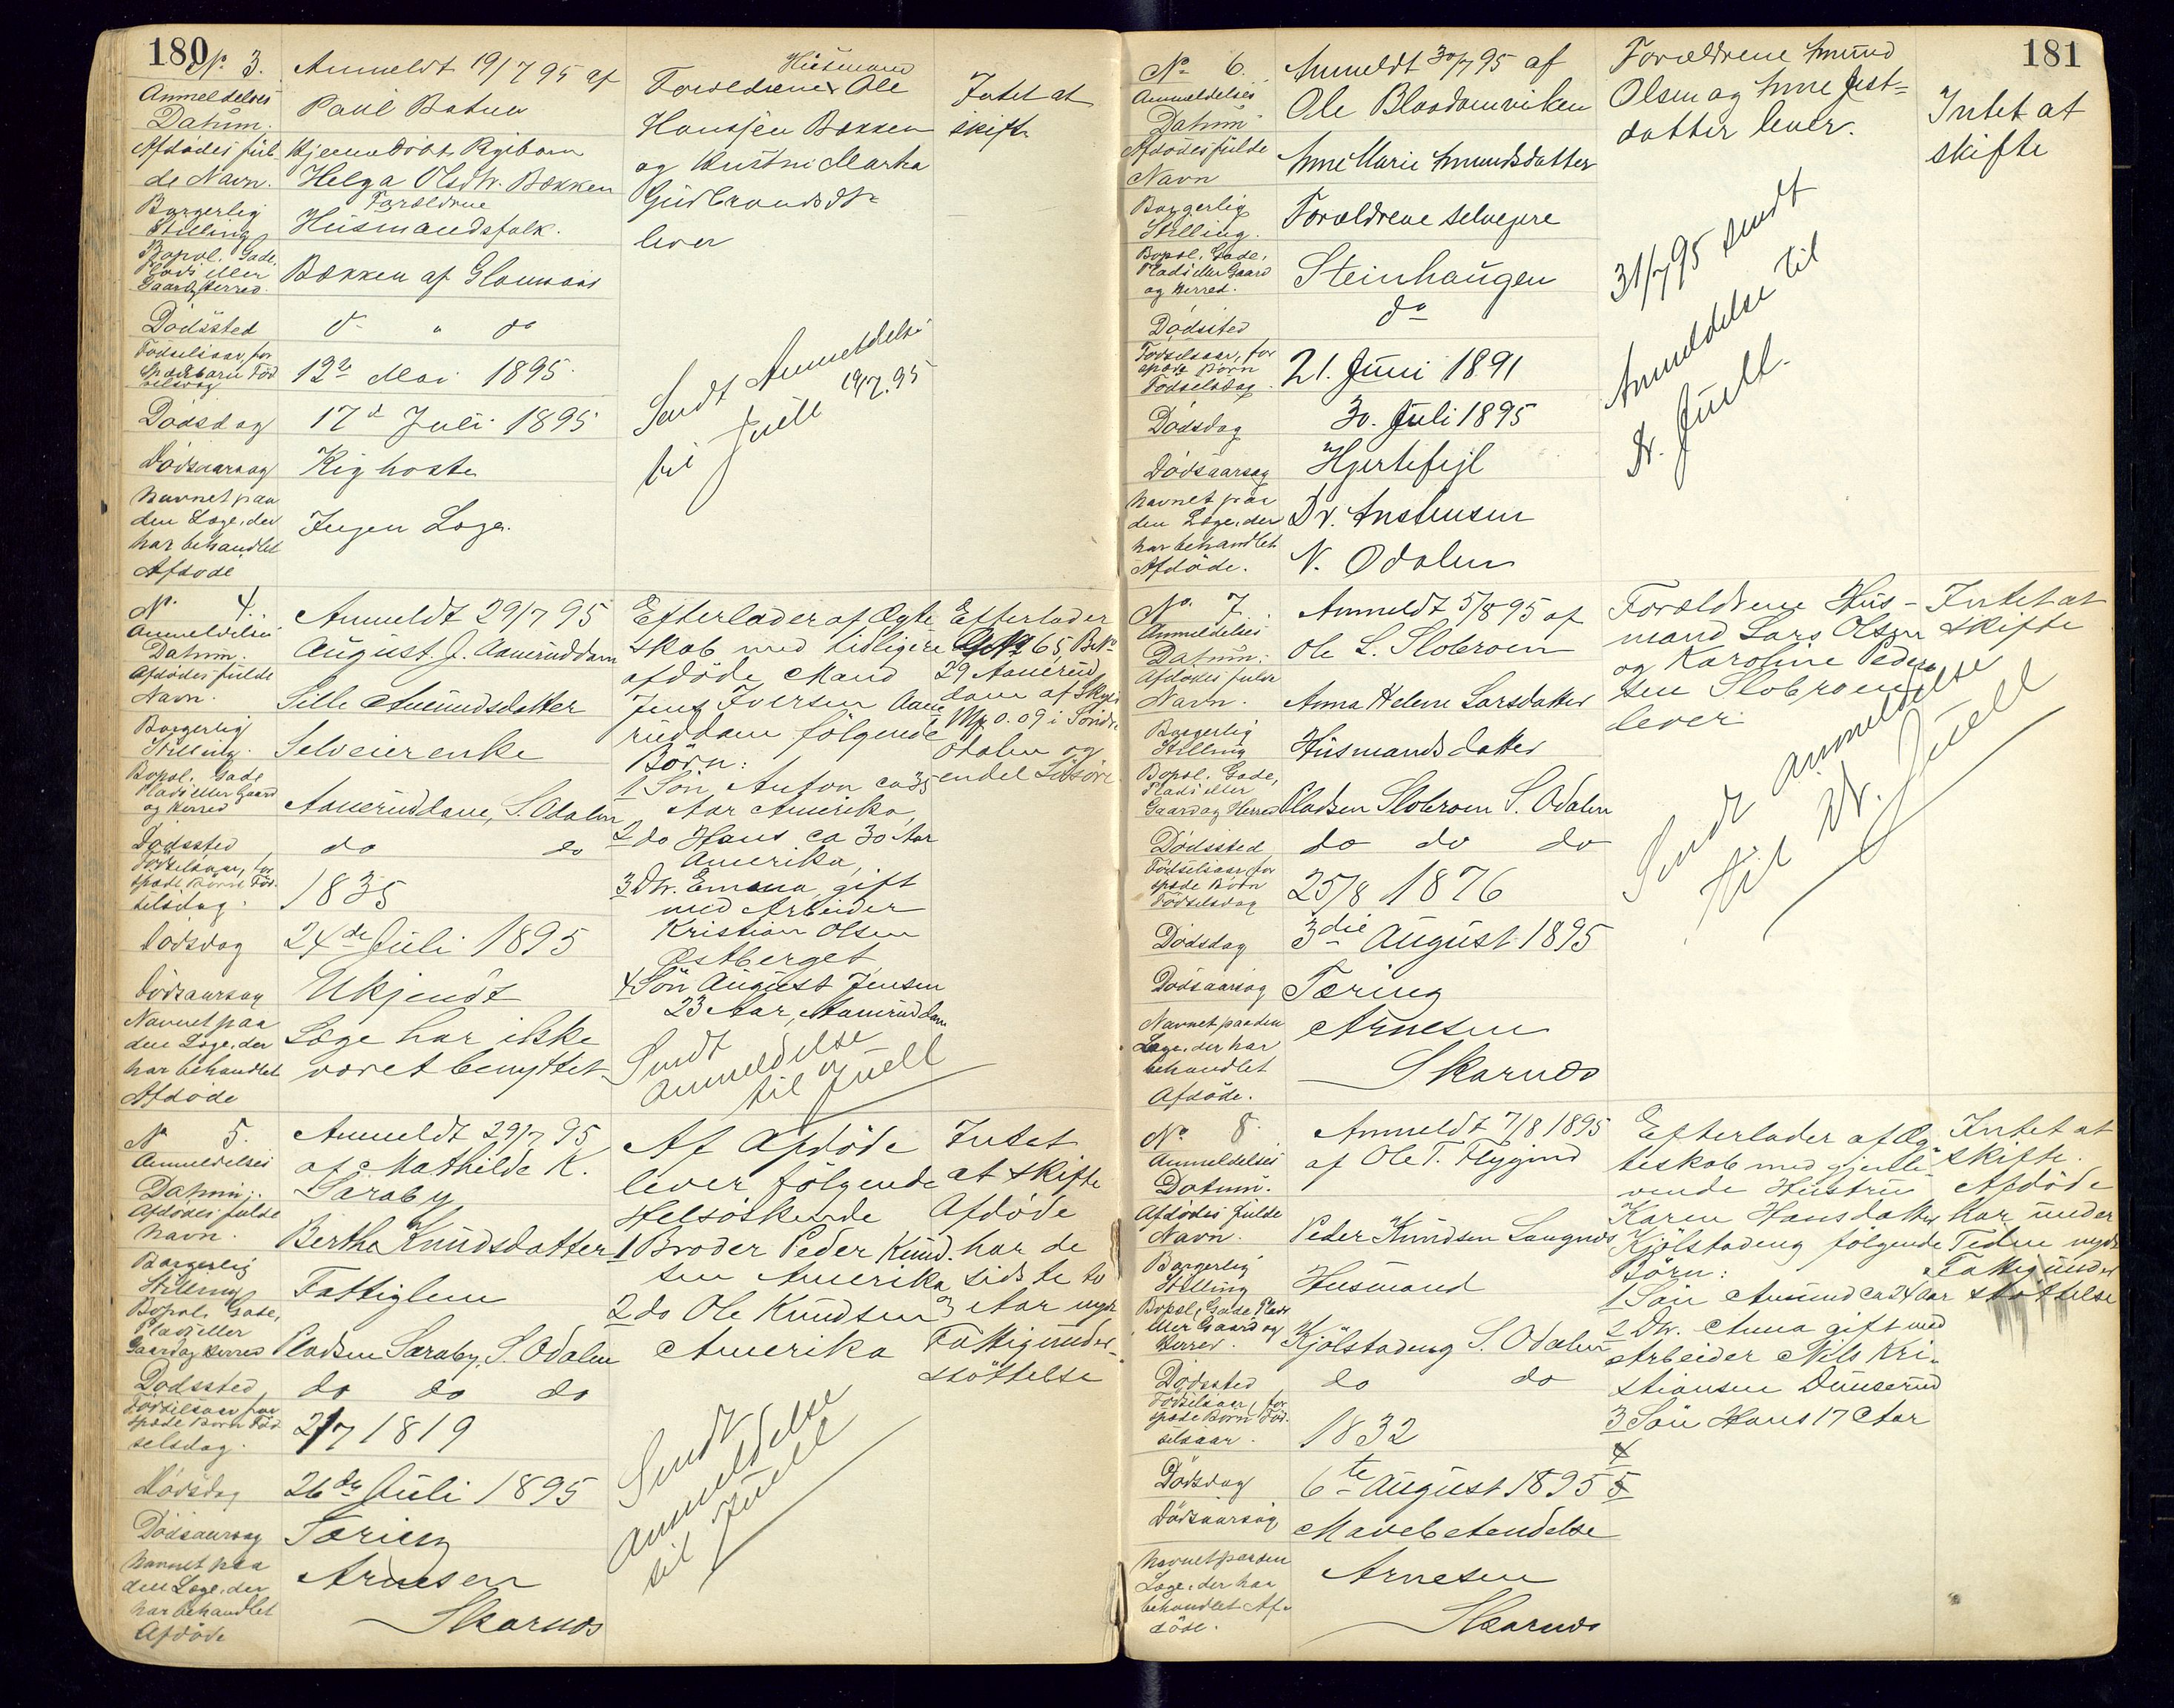 180
No. 3.
Anmeldelses
Datum.
Anmeldt 19/7 95 af
Paul Batnu
Afdödes ful-
de Navn.
Hjemmedöbt Pigebarn
Helga Olsdtr. Bækken
Borgerlig
Stilling
Forældrene
Husmandsfolk.
Bopæl. Gade.
Plads eller
Gaard & Herred.
Bækken af Glomaas
Dödssted
do " do
Födselsaar, for
spædebarn Föd-
selsdag
12te Mai 1895.
Dödsdag
17d Juli 1895
Dödsaarsag
Kighoste
Navnet paa
den Læge, der
har behandlet
Afdöde
Ingen Læge.
Husmand
Forældrene Ole
Hansen Bækken
og Kustru Martha
Gudbrandsdtr
lever
Sendt Anmeldelse
til Juell 19/7.95
Intet at
skifte
No. 4.
Anmeldelses
Datum.
Anmeldt 29/7 95
August. J. Aaneruddam
Afdödes fulde
Navn.
Sille Amundsdatter
Borgerlig
Stilling.
Selveierenke
Bopæl. Gade
Plads eller Gaard
og Herred
Aaneruddam, S. Odalen
Dödssted
do do
Födselsaar, for
spæde Börn Föd-
selsdag.
1835
Dödsdag
24de Juli 1895
Dödsaarsag
Ukjendt
Navnet paa
den Læge, der
har behandlet
Afdöde
Læge har ikke
været benyttet
Efterlader af Ægte
skab med tidligere
afdöde Mand
Jens Iversen Aane
ruddam fölgende
Börn:
1 Sön Anton ca 35
Aar Amerika,
2 do Hans ca 30 Aar
Amerika,
3 Dtr. Emma, gift
med Arbeider
Kristian Olsen
Østberget
4 Sön August Jensen
23 Aar, Aaneruddam
Sendt
anmeldelse
til Juell
Efterlader
G.No 65, B.No
29 Aanerud
dam af Skyld
Mk 0.09 i Söndre
Odalen og
endel Lösöre
No 5.
Anmeldelses
Datum.
Anmeldt 29/7 95
af Mathilde K.
Saraby
Afdödes fulde
Navn.
Berthe Knudsdatter
Borgerlig
Stilling
Fattiglem
Bopæl. Gade,
Plads eller
Gaard og Herred
Pladsen Saraby, S. Odalen
Dödssted,
do do do
Födselsaar, for
spæde Börn Föd-
selsdag.
2/7 1819
Dödsdag
26de Juli 1895
Dödsaarsag
Tæring
Navnet paa
den Læge, der
har behandlet
Afdöde
Arnesen
Skarnæs
Af Afdöde
lever fölgende
Helsöskende
1 Broder Peder Knud-
sen Amerika
2 do Ole Knudsen
Amerika
Sendt
anmeldelse
til Juell
Intet
at skifte
Afdöde
har de
sidste to
3 Aar nydt
Fattigunder-
stöttelse
181
No 6.
Anmeldelses
Datum.
Anmeldt 30/7 95 af
Ole Bloddamviken
Afdödes fulde
Navn
Anne Marie Amundsdatter
Borgerlig
Stilling.
Forældrene selveiere
Bopæl. Gade,
Plads eller Gaard
og Herred.
Steinhaugen
Dödssted
do
Födselsaar, for
spæde Börn
Födselsdag.
21. Juni 1891
Dödsdag
30. Juli 1895
Dödsaarsag
Hjertefejl
Navnet paa
den Læge, der
har behandlet
Afdöde.
Dr. Anstensen
N. Odalen
Forældrene Amund
Olsen og Anne Gust-
datter lever.
31/7 95 sendt
Anmeldelse til
Dr. Juell.
Intet at
skifte
No. 7.
Anmeldelses
Datum:
Anmeldt 5/8 95 af
Ole L. Slobroen
Afdödes fulde
Navn.
Anna Helene Larsdatter
Borgerlig
Stilling
Husmandsdatter
Bopæl. Gade,
Plads eller
Gaard og Herred
Pladsen Slobroen S. Odalen
Dödssted
do do do
Födselsaar, for
spæde Börn
Födselsdag
25/8 1876
Dödsdag
3die August 1895
Dödsaarsag
Tæring
Navnet paa den
Læge, der har
behandlet
Afdöde.
Arnesen
Skarnæs
Forældrene Hus-
mand Lars Olsen
og Karoline Peder
sen Slobroen
lever
Sendt anmeldelse
til Dr. Juell
Intet at
skifte
No. 8.
Anmeldelses
Datum.
Anmeldt 7/8 1895
af Ole T. Flygind
Afdödes fulde
Navn.
Peder Knudsen Langnæs
Borgerlig
Stilling
Husmand
Bopæl, Gade Plads
eller Gaard og
Herred.
Kjölstadeng S. Odalen
Dödssted
do do
Födselsaar, for
spæde Börn Föd-
selsaar.
1832
Dödsdag
6te August 1895
Dödsaarsag
Mavebetendelse
Navnet paa den
Læge, der har
behandlet Af-
döde.
Arnesen
Skarnæs
Efterlader af Æg-
teskab med gjenle-
vende Hustru
Karen Hansdatter
Kjölstadeng fölgende
Börn:
1 Sön Amund ca 24 Aar
2 Dtr. Anna gift med
Arbeider Nils Kri-
stiansen Dunserud
3 Sön Hans 17 Aar
4
5
Intet at
skifte.
Afdöde
har under
Tiden nydt
Fattigunder
stöttelse